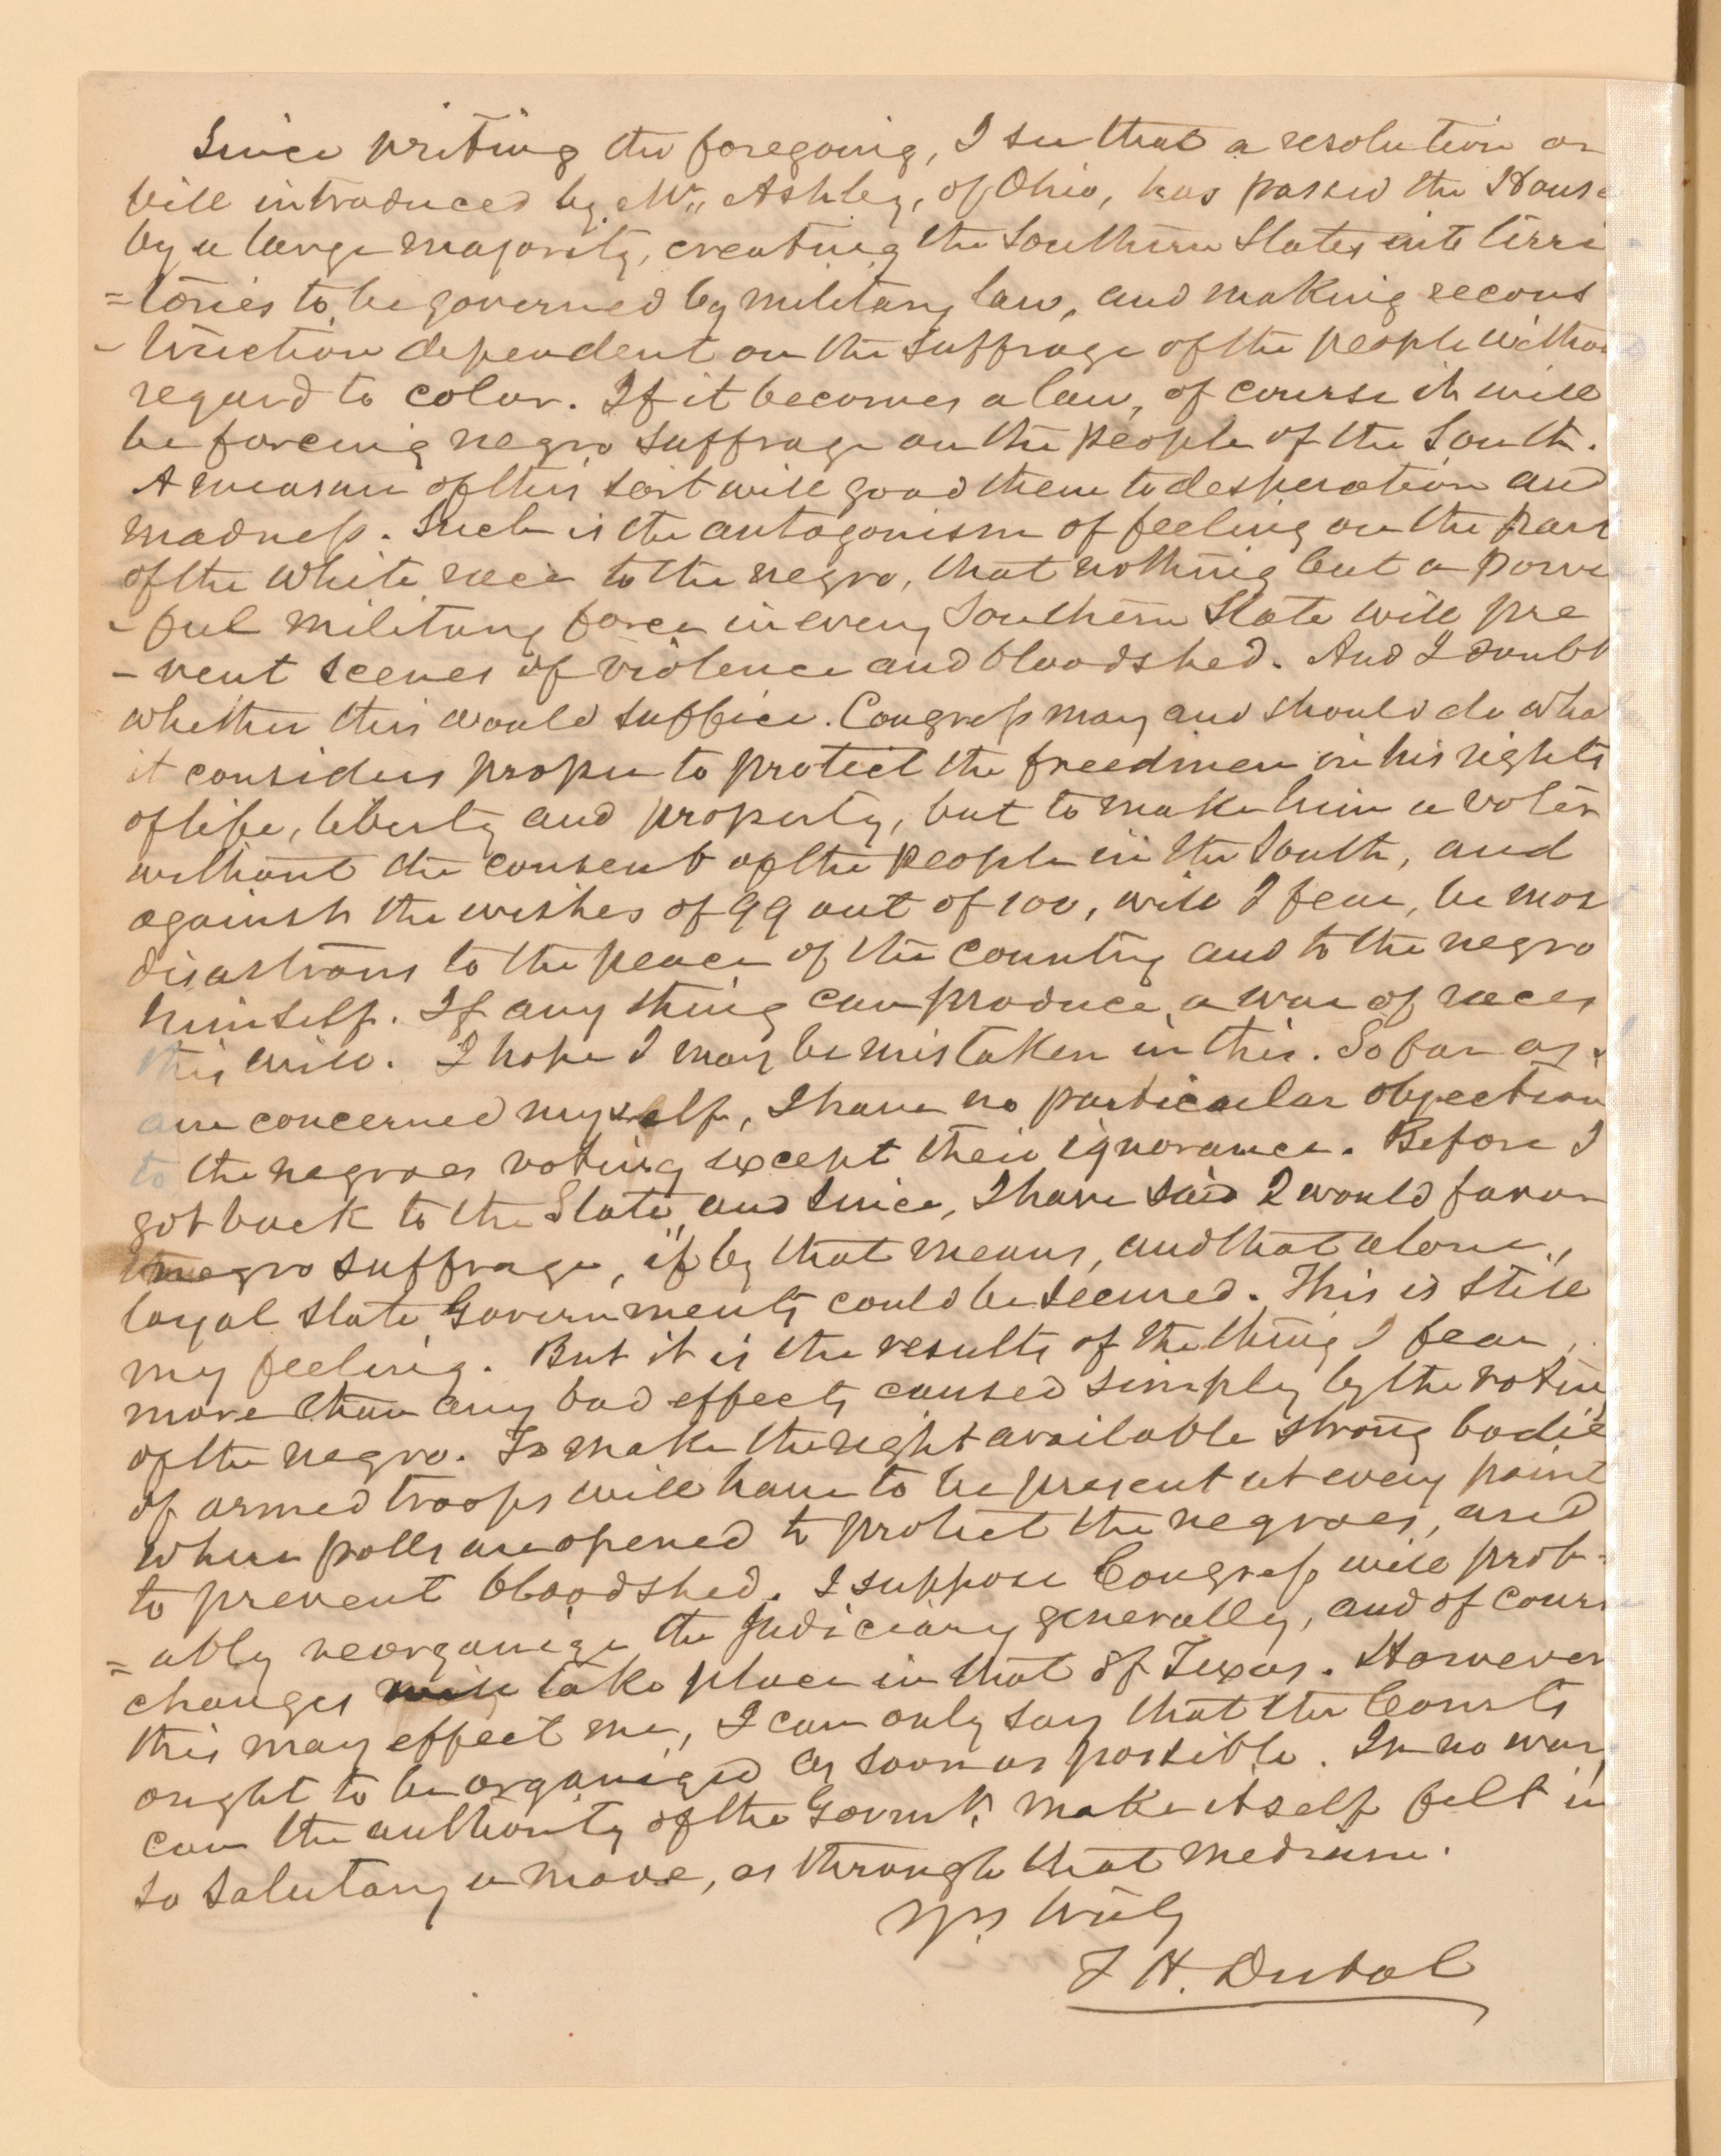 Since writing the foregoing, I see that a resolution or
bill introduced by Mr. Ashley, of Ohio, has passed the House
by a large majority, creating the Southern States into terri
=tories to be governed by military law, and making recons
-truction dependent on the suffrage of the people withou
regard to color. If it becomes a law, of course it will
be forcing negro suffrage on the people of the South.
A measure of this sort will goad them to desperation and
madness. Such is the antagonism of feeling on the part
of the white race to the negro, that nothing but a powe
-ful military force in every Southern State will pre
-vent scenes of violence and bloodshed. And I doubt
whether this would suffice. Congress may and should do wha
it considers proper to protect the freedmen in his rights
of life, liberty and property, but to make him a voter
without the consent of the people in the South, and
against the wishes of 99 out of 100, will I fear, be mos
disastrous to the peace of the country and to the negro
himself. If any thing can produce a war of races
this will. I hope I may be mistaken in this. So far as
am concerned myself, I have no particular objection
to the negroes voting except their ignorance. Before I
got back to the State, and since, I have said I would favor
negro suffrage, if by that means, and that alone,
loyal State Governments could be secured. This is still
my feeling. But it is the results of the thing I fear,
more than any bad effects caused simply by the voting
of the negro. To make the right available strong bodie
of armed troops will have to be present at every point
where polls are opened to protect the negroes, and
to prevent bloodshed. I suppose Congress will prob-
=ably reorganize the Judiciary generally, and of cours
changes will take place in that of Texas. However
this may effect me, I can only say that the Courts
ought to be organized as soon as possible. In no way
can the authority of the Govmt. make itself felt in
so salutary a mode, as through that medium.
Yrs truly
T H. Duval